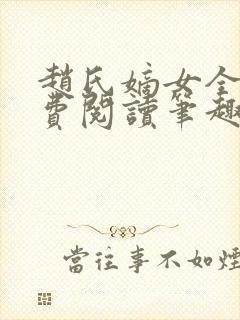 趙氏嫡女全
費閱讀筆趣
當往事不如煙